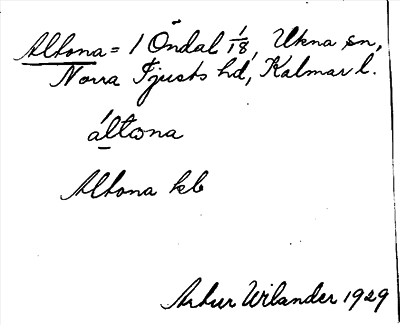 Altona = 1 Öndal 1/18, Ukna sn,
Norra Tjusts hd, Kalmar l.
áltωna
Altona kb
Artur Wilander 1929